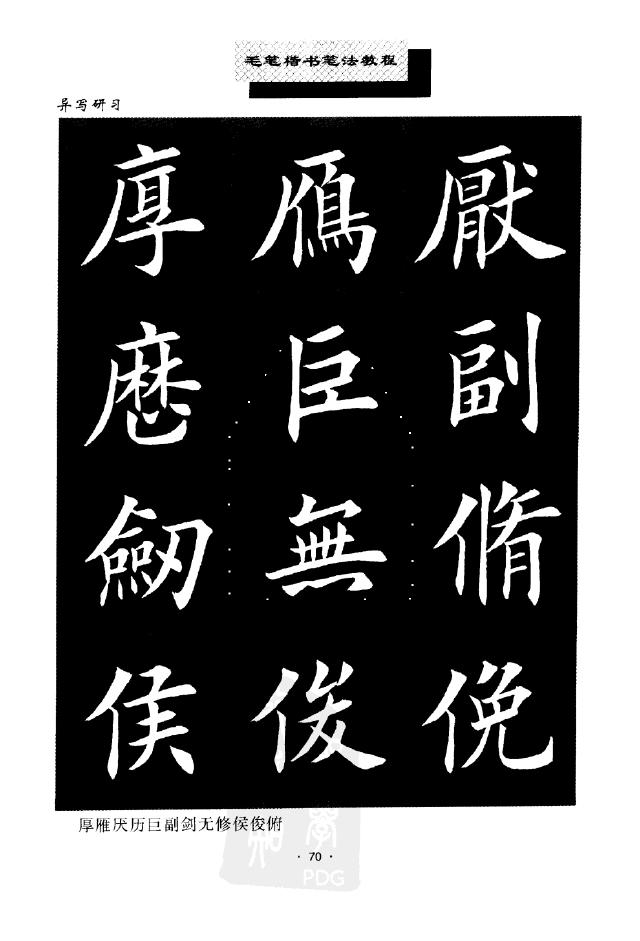 毛笔楷书笔法教程
异写研习
厚 鴈 厭
巨 副
劒 無 脩
侯 俊 俛
厚雁厌历巨副剑无修侯俊俯
· 70 ·
PDG